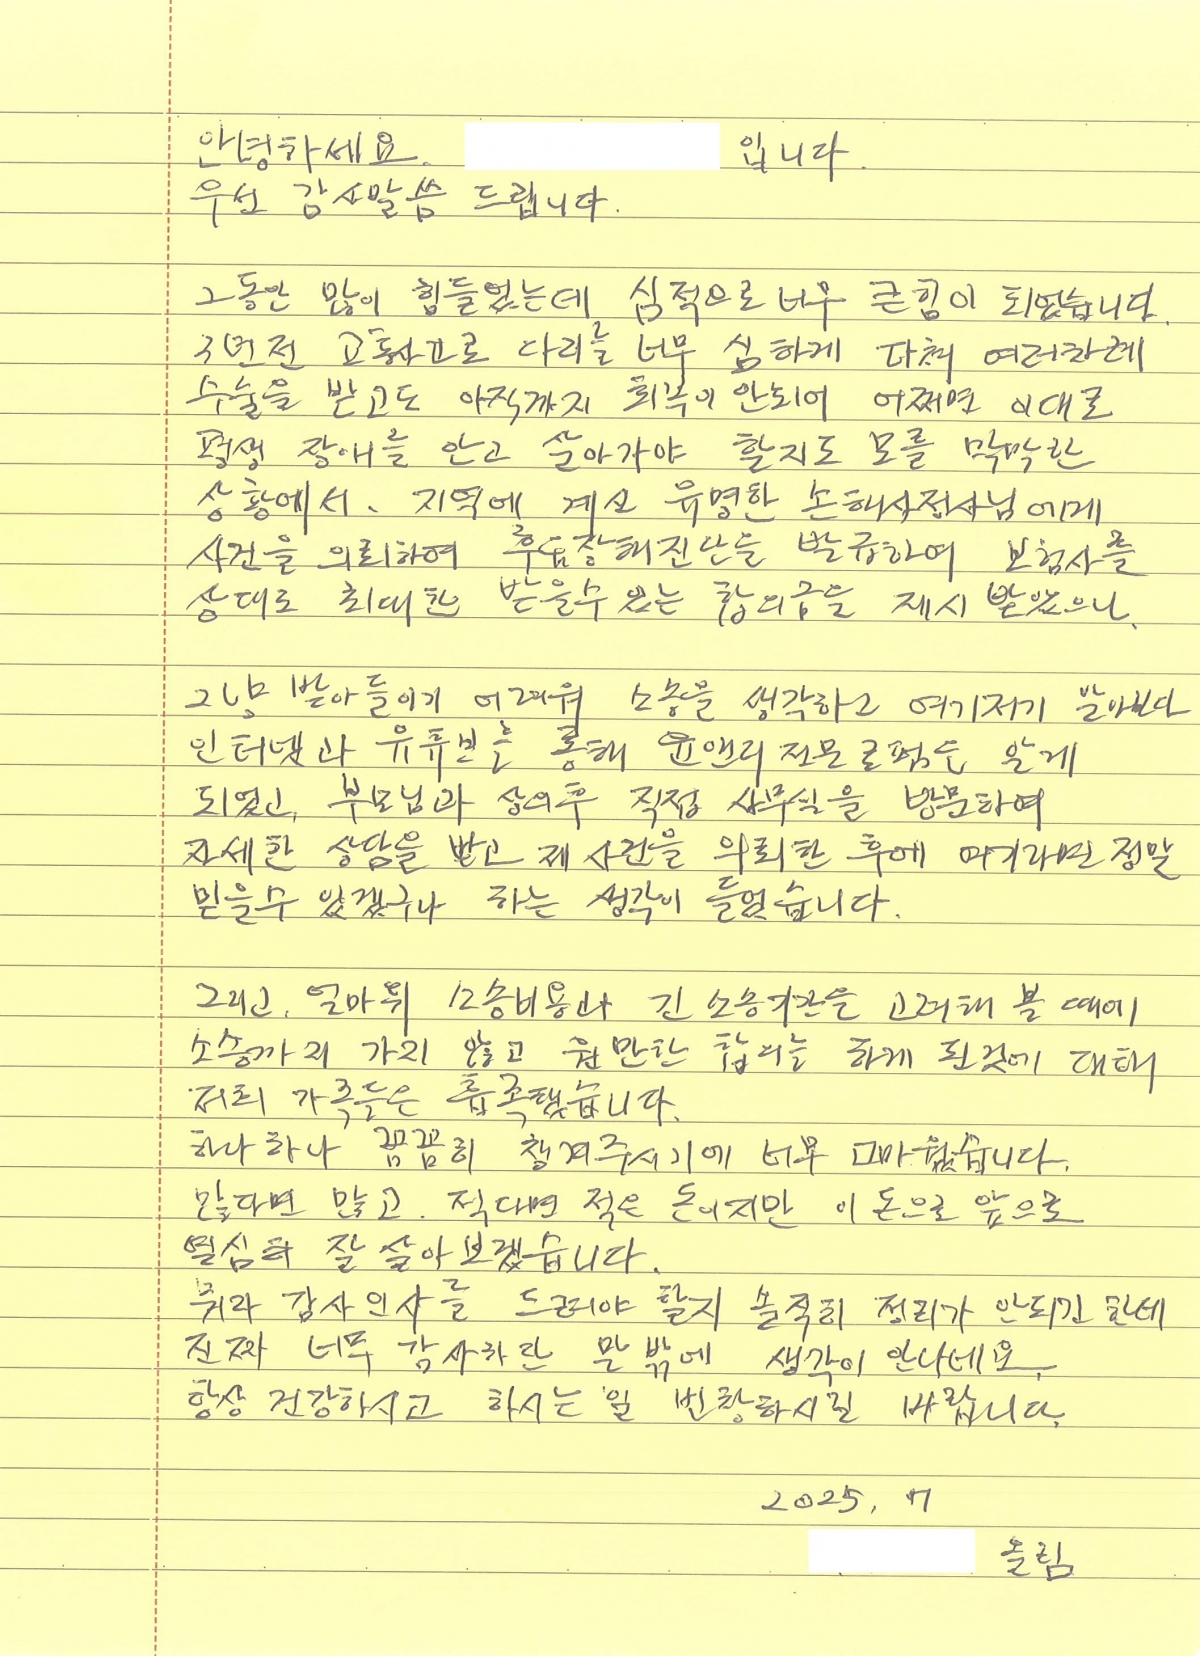 안녕하세요. 입니다.
우선 감사말씀 드립니다.
그동안 많이 힘들었는데 심적으로 너무 큰힘이 되었습니다.
3년전 교통사고로 다리를 너무 심하게 다쳐 여러차례
수술을 받고도 아직까지 회복이 안되어 어쩌면 이대로
평생 장애를 안고 살아가야 할지도 모를 막막한
상황에서, 지역에 계신 유명한 손해사정사님에게
사건을 의뢰하여 후유장해진단을 발급하여 보험사를
상대로 최대한 받을수 있는 합의금을 제시 받았으나,
그냥 받아들이기 어려워 소송을 생각하고 여기저기 알아보다
인터넷과 유튜브를 통해 윤앤리 전문로펌을 알게
되었고, 부모님과 상의후 직접 사무실을 방문하여
자세한 상담을 받고 제 사건을 의뢰한 후에 여기라면 정말
믿을수 있겠구나 하는 생각이 들었습니다.
그리고, 얼마뒤 소송비용과 긴 소송기간을 고려해 볼 때에
소송까지 가지 않고 원만한 합의를 하게 된것에 대해
저희 가족들은 흡족했습니다.
하나하나 꼼꼼히 챙겨주시기에 너무 고마웠습니다.
많다면 많고, 적다면 적은 돈이지만 이 돈으로 앞으로
열심히 잘 살아보겠습니다.
뭐라 감사인사를 드려야 할지 솔직히 정리가 안되긴 한데
진짜 너무 감사하단 말 밖에 생각이 안나네요.
항상 건강하시고 하시는 일 번창하시길 바랍니다.
2025. 7
올림